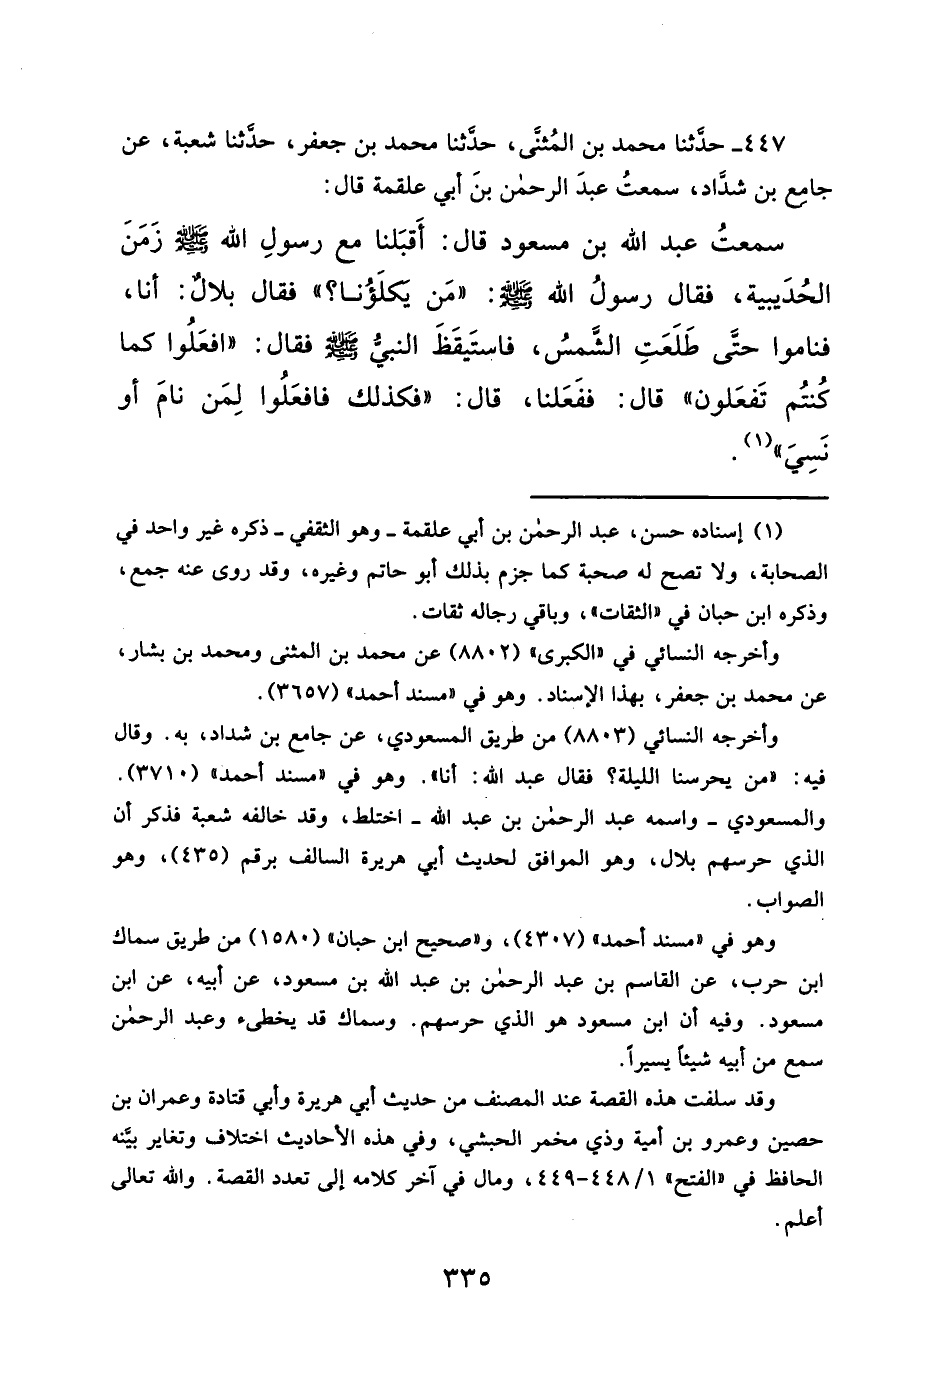 ٤٤٧ـ حدَّثنا محمد بن المُثنَّى، حدَّثنا محمد بن جعفر، حدَّثنا شعبة، عن
جامع بن شدَّاد، سمعتُ عبدَ الرحمٰن بنَ أبي علقمة قال:
سمعتُ عبد الله بن مسعود قال: أَقبَلنا مع رسولِ الله ﷺ زَمَنَ
الحُدَيبية، فقال رسولُ الله ﷺ: «مَن يَكلَؤُنا؟» فقال بلالٌ: أنا،
فناموا حتَّى طَلَعَتِ الشَّمسُ، فاستَيقَظَ النبيُّ ﷺ فقال: «افعَلُوا كما
كُنتُم تَفعَلون» قال: ففَعَلنا، قال: «فكذلك فافعَلُوا لِمَن نامَ أو
نَسِيَ»(١).
(١) إسناده حسن، عبد الرحمٰن بن أبي علقمة ـ وهو الثقفي ـ ذكره غير واحد في
الصحابة، ولا تصح له صحبة كما جزم بذلك أبو حاتم وغيره، وقد روى عنه جمع،
وذكره ابن حبان في «الثقات»، وباقي رجاله ثقات.
وأخرجه النسائي في «الكبرى» (٨٨٠٢) عن محمد بن المثنى ومحمد بن بشار،
عن محمد بن جعفر، بهذا الإسناد. وهو في «مسند أحمد» (٣٦٥٧).
وأخرجه النسائي (٨٨٠٣) من طريق المسعودي، عن جامع بن شداد، به. وقال
فيه: «من يحرسنا الليلة؟ فقال عبد الله: أنا». وهو في «مسند أحمد» (٣٧١٠).
والمسعودي ـ واسمه عبد الرحمٰن بن عبد الله ـ اختلط، وقد خالفه شعبة فذكر أن
الذي حرسهم بلال، وهو الموافق لحديث أبي هريرة السالف برقم (٤٣٥)، وهو
الصواب.
وهو في «مسند أحمد» (٤٣٠٧)، و«صحيح ابن حبان» (١٥٨٠) من طريق سماك
ابن حرب، عن القاسم بن عبد الرحمٰن بن عبد الله بن مسعود، عن أبيه، عن ابن
مسعود. وفيه أن ابن مسعود هو الذي حرسهم. وسماك قد يخطىء وعبد الرحمٰن
سمع من أبيه شيئاً يسيراً.
وقد سلفت هذه القصة عند المصنف من حديث أبي هريرة وأبي قتادة وعمران بن
حصين وعمرو بن أمية وذي مخمر الحبشي، وفي هذه الأحاديث اختلاف وتغاير بيَّنه
الحافظ في «الفتح» ١/ ٤٤٨-٤٤٩، ومال في آخر كلامه إلى تعدد القصة. والله تعالى
أعلم.
٣٣٥